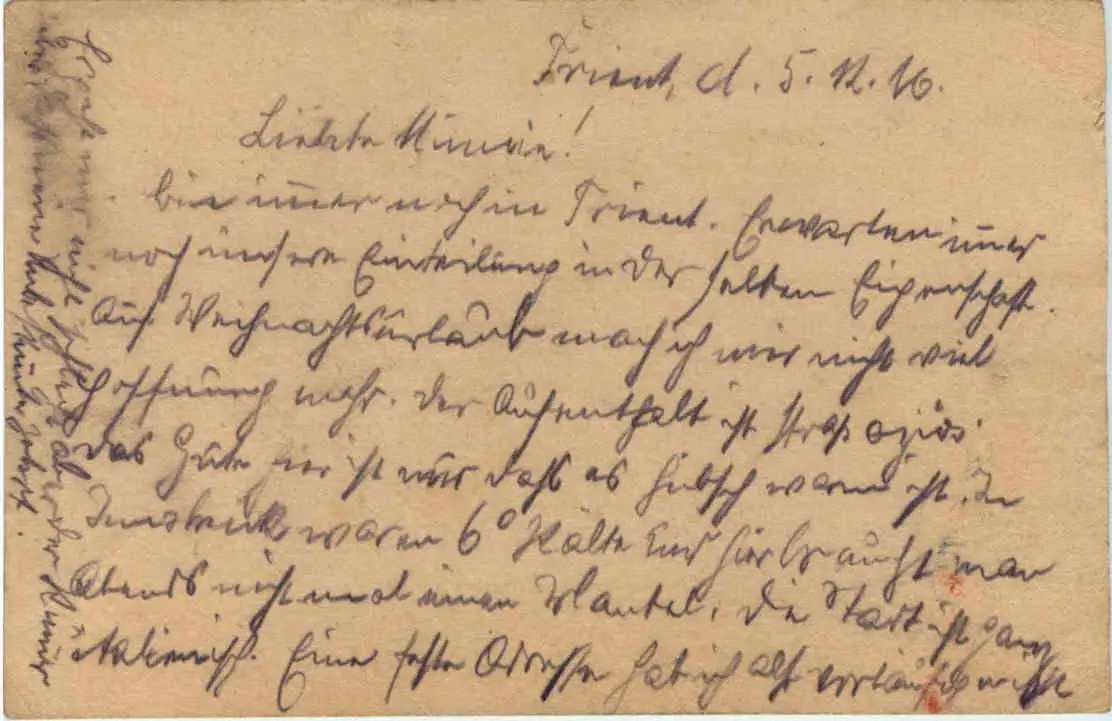 Trient, d. 5.12.16.
Liebste Minnie!
bin immer noch in Trient. Erwarten immer
noch unsere Einteilung in der selben Eigenschaft.
Auf Weihnachtsurlaub mach ich mir nicht viel
Hoffnung mehr. Der Aufenthalt ist strapaziös.
Das Gute hier ist nur dass es hübsch warm ist. In
Innsbruck waren 6° Kälte und hier braucht man
Abends nicht mal einen Mantel. Die Stadt ist ganz
italienisch. Eine feste Adresse hab ich also vorläufig nicht
mir nicht aber der
meine